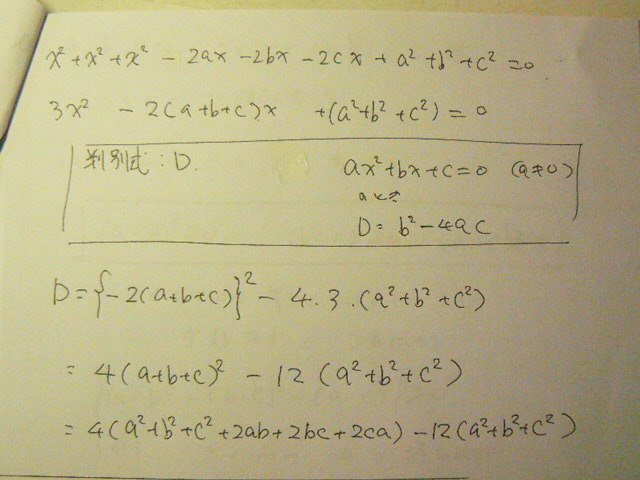 x²+x²+x² - 2ax - 2bx - 2cx + a²+b²+c² = 0
3x² - 2(a+b+c)x +(a²+b²+c²) = 0
判別式:D. ax²+bx+c=0 (a≠0)
のとき
D= b²-4ac
D={-2(a+b+c)}² - 4.3.(a²+b²+c²)
= 4(a+b+c)² - 12 (a²+b²+c²)
= 4(a²+b²+c²+2ab+2bc+2ca) -12(a²+b²+c²)